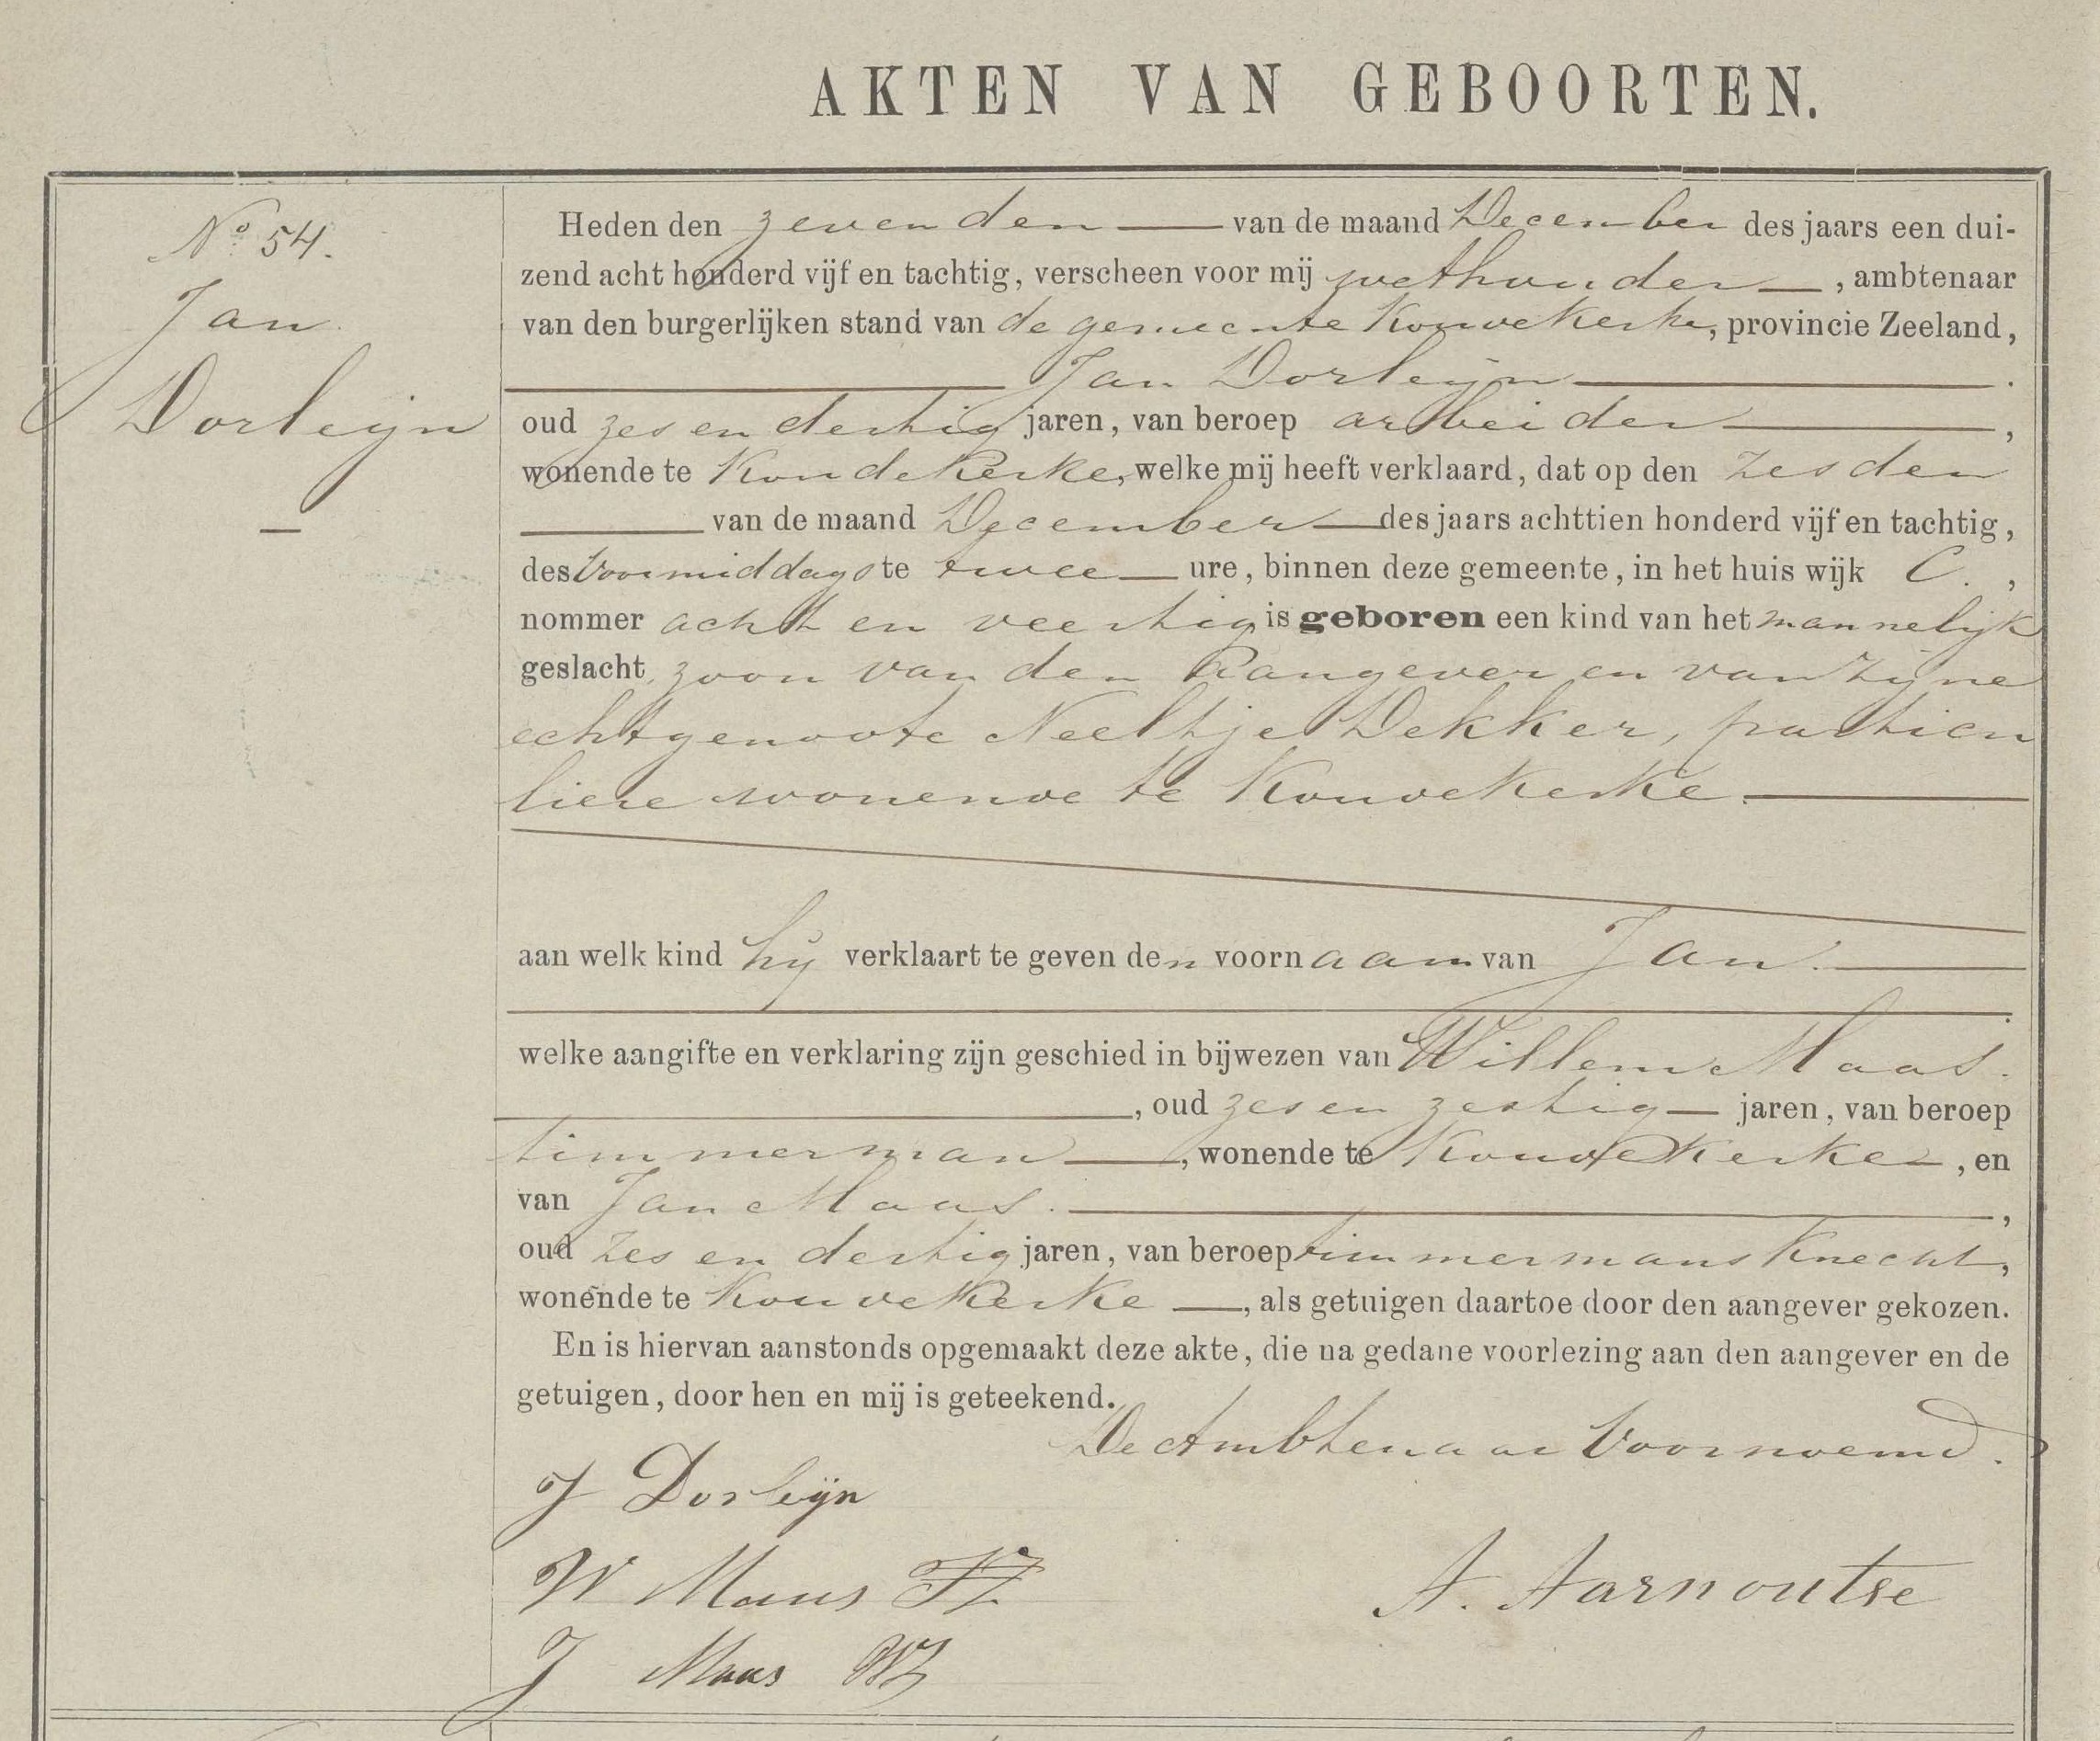 AKTEN VAN GEBOORTEN.
No. 54.
Jan
Dorleijn
Heden den zevenden van de maand December des jaars een dui-
zend acht honderd vijf en tachtig, verscheen voor mij wethouder, ambtenaar
van den burgerlijken stand van de gemeente Koudekerke, provincie Zeeland,
Jan Dorleijn.
oud zes en dertig jaren, van beroep arbeider,
wonende te Koudekerke, welke mij heeft verklaard, dat op den zesden
van de maand December des jaars achttien honderd vijf en tachtig,
des Voormiddags te twee ure, binnen deze gemeente, in het huis wijk C.,
nommer acht en veertig is geboren een kind van het mannelijk
geslacht, zoon van den Aangever en van zijne
echtgenoote Neeltje Dekker, particu
liere wonende te Koudekerke.
aan welk kind hij verklaart te geven den voornaam van Jan.
welke aangifte en verklaring zijn geschied in bijwezen van Willem Maas.
, oud zes en zestig jaren, van beroep
timmerman, wonende te Koudekerke, en
van Jan Maas.,
oud zes en dertig jaren, van beroep timmermansknecht,
wonende te Koudekerke, als getuigen daartoe door den aangever gekozen.
En is hiervan aanstonds opgemaakt deze akte, die na gedane voorlezing aan den aangever en de
getuigen, door hen en mij is geteekend.
De Ambtenaar Voornoemd.
J Dorleijn
W Maas FZ
A. Aarnoutse
J Maas WZ